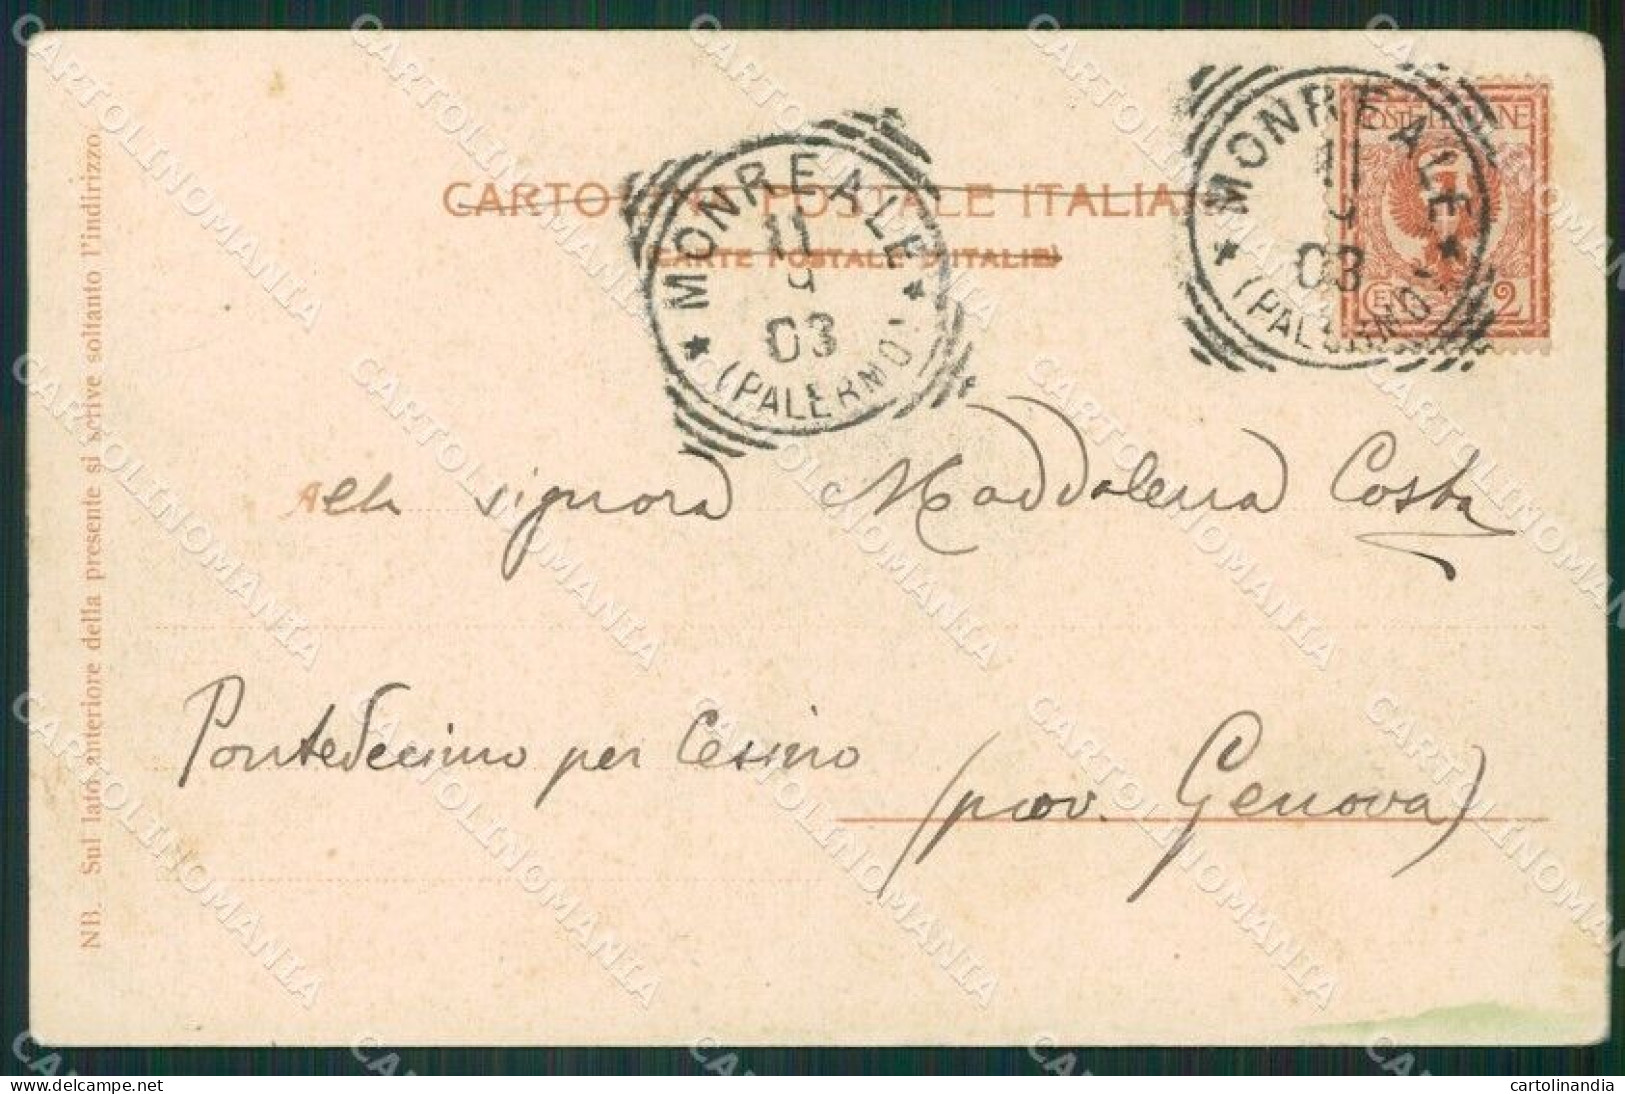 CARTOLINA POSTALE ITALIANA
CARTE POSTALE D'ITALIE
MONREALE
11
9
03
(PALERMO)
MONREALE
11
9
03
(PALERMO)
POSTE ITALIANE
CENT. 2
Alla signora Maddalena Costa
Pontedecimo per Cesino
(prov. Genova)
NB. Sul lato anteriore della presente si scrive soltanto l'indirizzo.
CARTOLINOMANIA
cartolinandia